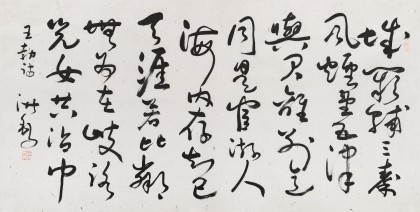 城闕輔三秦
風煙望五津
與君離別意
同是宦游人
海內存知己
天涯若比鄰
無為在歧路
兒女共沾巾
王勃詩